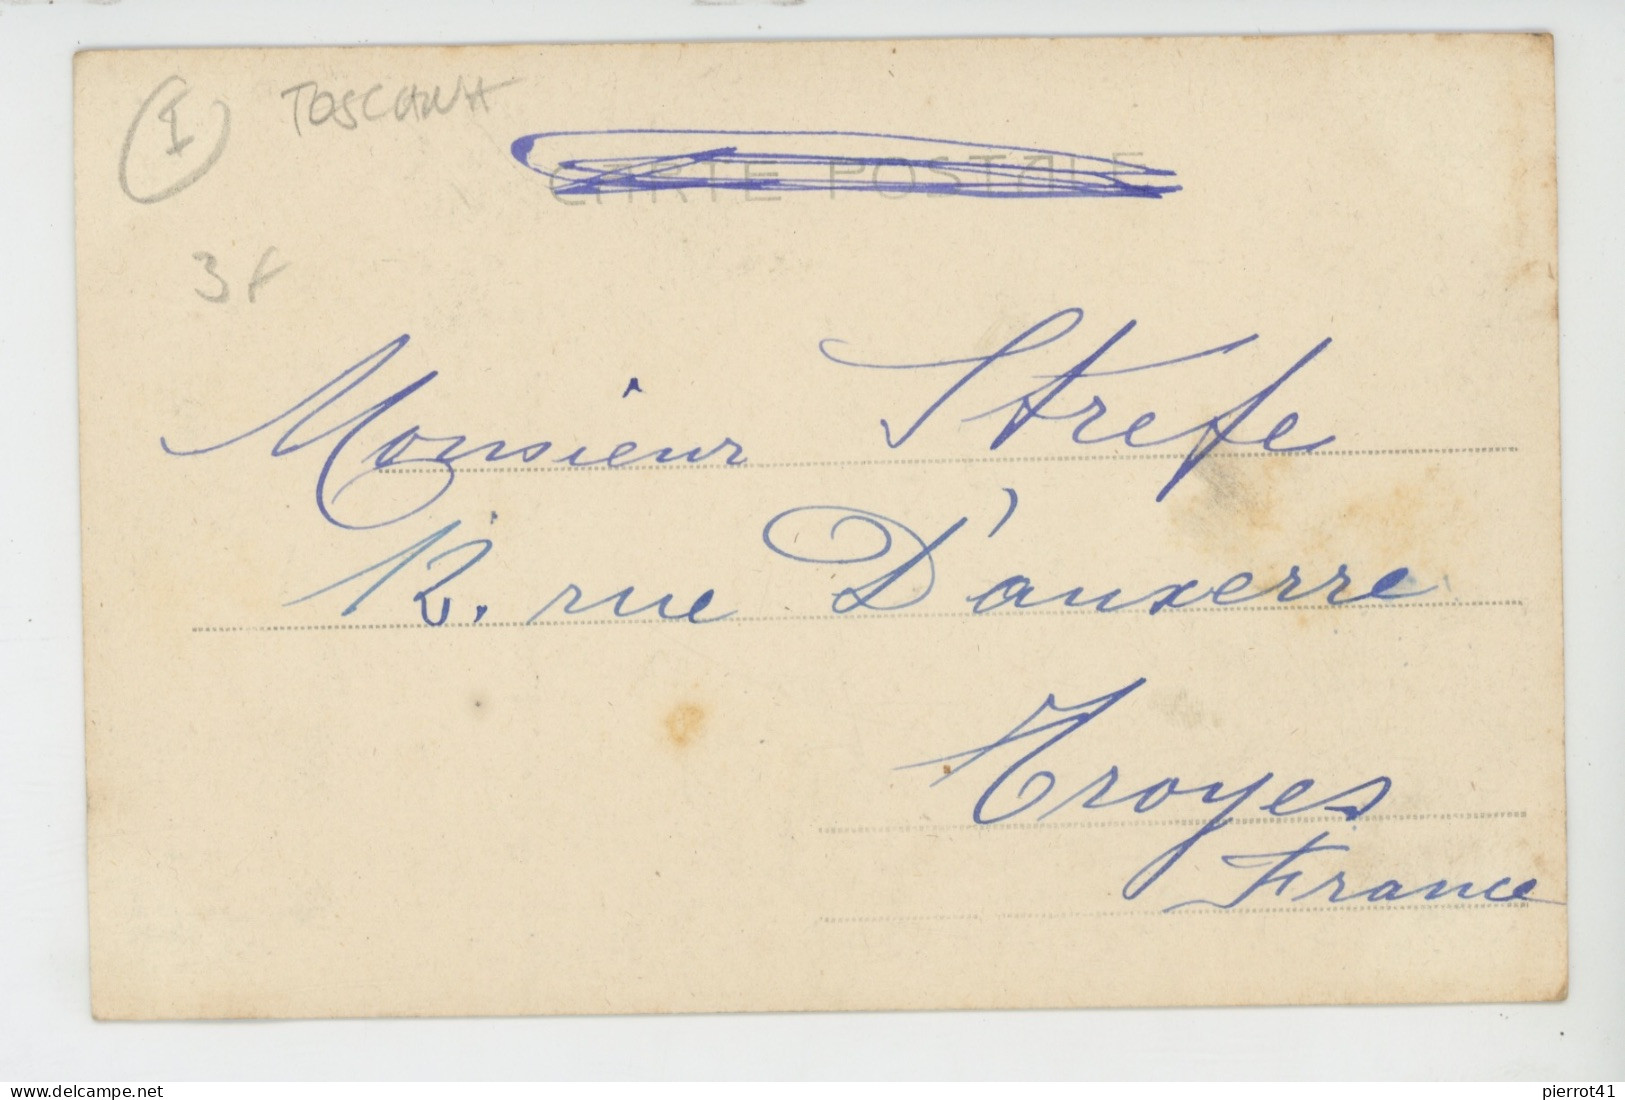 I TOSCANA
CARTE POSTALE
3f
Monsieur Strefe
12. rue D'auxerre
Troyes
France
www.delcampe.net
pierrot41